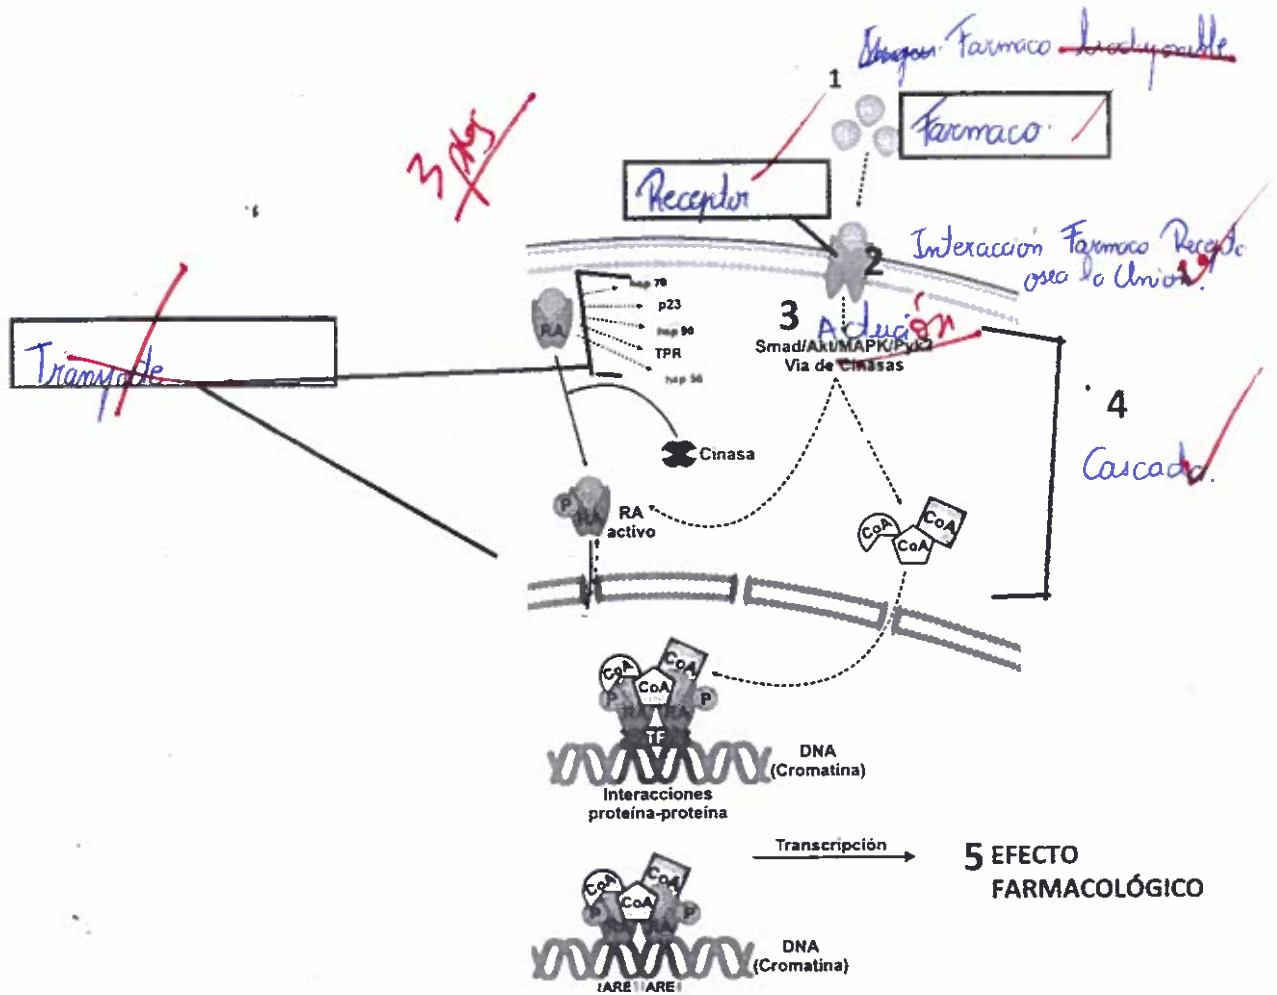 Farmaco
1
Farmaco.
3 pts
Receptor
2
Interacción Farmaco Recepto
osea la Union.
hsp 70
p23
hsp 90
TPR
hsp 56
RA
3
Smad/Akt/MAPK/Pyk2
Via de Cinasas
4
Cascada.
Cinasa
P
RA
RA
activo
CoA
CoA
CoA
CoA
CoA
CoA
P
P
RA
RA
TF
DNA
(Cromatina)
Interacciones
proteína-proteína
Transcripción
5 EFECTO
FARMACOLÓGICO
CoA
CoA
CoA
P
P
RA
DNA
(Cromatina)
ARE
ARE